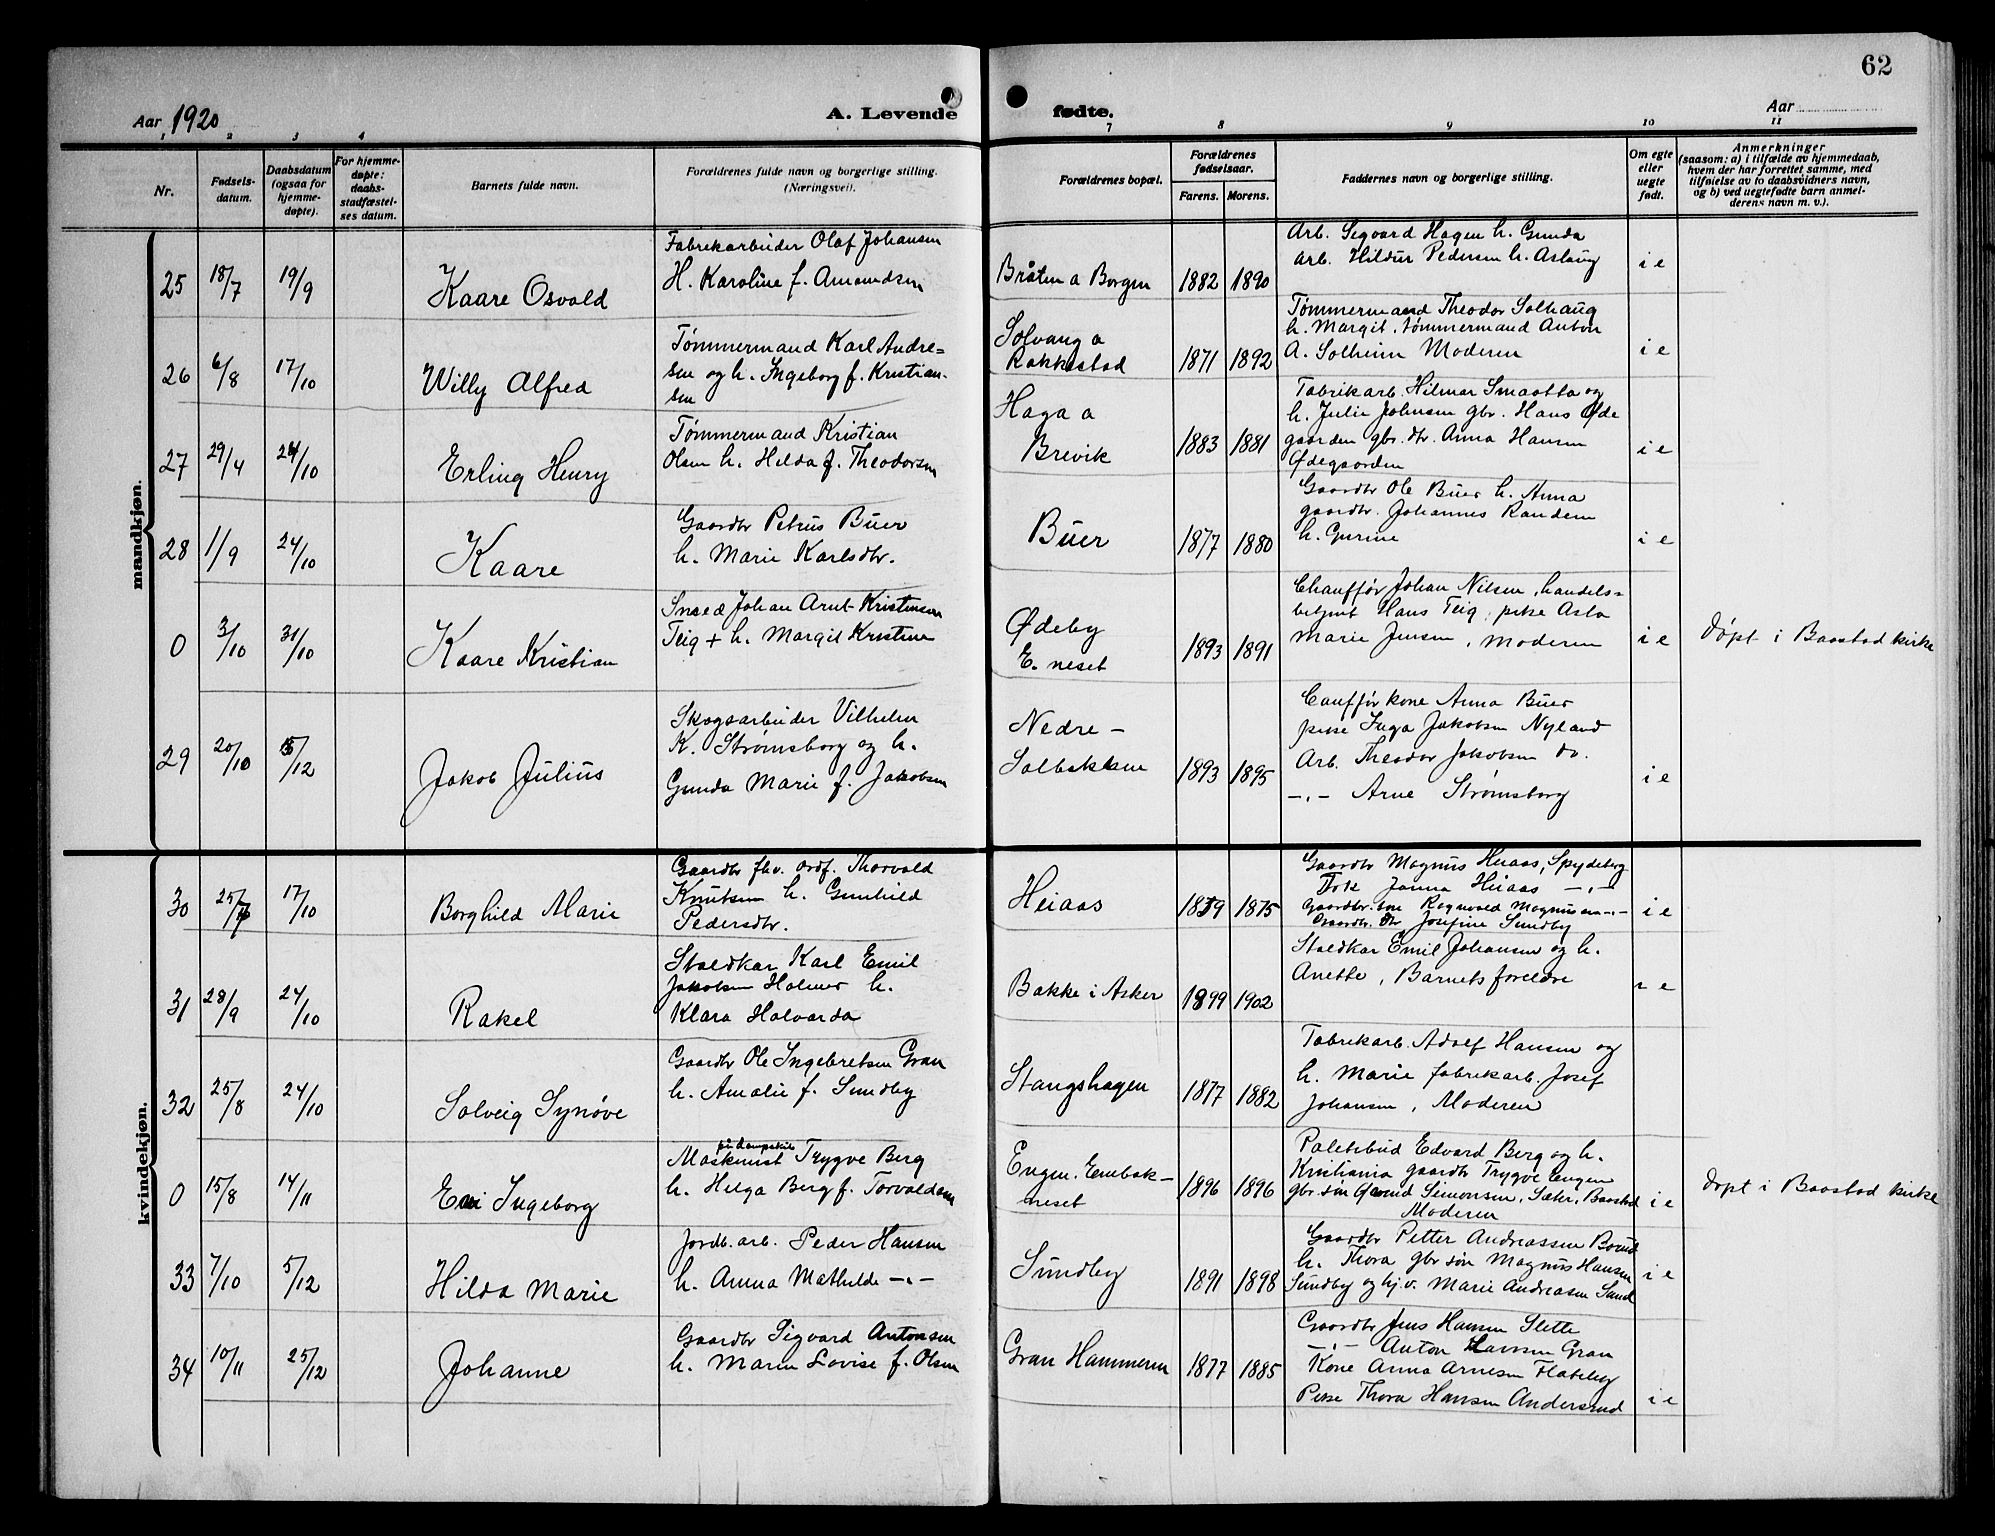 62
Aar 1920
A. Levende fødte.
Aar
1 2 3 4 7 8 9 10 11
Nr.
Fødsels-
datum.
Daabsdatum
(ogsaa for
hjemme-
døpte).
For hjemme-
døpte:
daabs-
stadfæstel-
ses datum.
Barnets fulde navn.
Forældrenes fulde navn og borgerlige stilling.
(Næringsvei).
Forældrenes bopæl.
Forældrenes
fødselsaar.
Farens. Morens.
Faddernes navn og borgerlige stilling.
Om egte
eller
uegte
født.
Anmerkninger
(saasom: a) i tilfælde av hjemmedaab,
hvem der har forrettet samme, med
tilføielse av to daabsvidners navn,
og b) ved uegtefødte barn anmel-
derens navn m. v.).
mandkjøn.
25 18/7 19/9 Kaare Osvald
Fabrekarbeider Olaf Johansen
H. Karoline f. Amundsen
Bråten a Borgen 1882 1890
Arb. Segvard Hagen h. Gunda
Arb. Hildur Pedersen h. Aslaug
i e
26 6/8 17/10 Willy Alfred
Tømmermand Karl Andre=
sen og h. Ingeborg f. Kristian-
sen
Solvang a
Rakkestad 1871 1892
Tømmermand Theodor Solhaug
h. Margit, tømmermand Anton
A. Solheim Moderen
i e
27 29/4 24/10 Erling Henry
Tømmermand Kristian
Olsen h. Hilda f. Theodorsen
Haga a
Brevik 1883 1881
Fabrikarb. Hilmar Smaatta og
h. Julie Johnsen gbr. Hans Øde
gaarden gbr. dtr. Anna Hansen
Ødegaarden
i e
28 1/9 24/10 Kaare
Gaardbr Petrus Buer
h. Marie Karlsdtr.
Buer 1877 1880
Gaardbr Ole Buer h. Anna
gaardbr. Johannes Randem
h. Gurine
i e
0 3/10 31/10 Kaare Kristian
Johan Arnt Kristensen
Teig + h. Margit Kristine
Ødeby
E. neset 1893 1891
Chauffør Johan Nilsen, handels=
betjent Hans Teig, pike Asla
Marie Jensen, Moderen
i e
Døpt i Baastad kirke
29 20/10 5/12 Jakob Julius
Skogsarbeider Vilhelm
K. Strømsborg og h.
Gunda Marie f. Jakobsen
Nedre –
Solbakken 1893 1895
Cauffør kone Anna Buer
pike Inga Jakobsen Nyland
Arb. Theodor Jakobsen do.
–"– Arne Strømsborg
i e
kvindekjøn.
30 25/7 17/10 Borghild Marie
Gaardbr fhv. ordf. Thorvald
Knutsen h. Gunhild
Pedersdtr.
Heiaas 1879 1875
Gaardbr Magnus Heiaas, Spydeberg
Frk Janna Heiaas –"–
Gaardbr. søn Ragnvald Magnussen –"–
Gaardbr. dtr Josefine Sundby
i e
31 28/9 24/10 Rakel
Staldkar Karl Emil
Jakobsen Holmer h.
Klara Halvarda
Bakke i Asker 1899 1902
Staldkar Emil Johansen og h.
Anette, Barnets foreldre
i e
32 25/8 24/10 Solveig Synøve
Gaardbr Ole Ingebretsen Gran
h. Amalie f. Sundby
Stangshagen 1877 1882
Fabrekarb. Adolf Hansen og
h. Marie fabrekarb. Josef
Johansen, Moderen
i e
0 15/8 14/11 Ingeborg
på dampskib
Maskinist Trygve Berg
h. Helga Berg f. Torvaldsen
Engen. Enebak-
neset 1896 1896
Paletsbud Edvard Berg og h.
Kristiania gaardbr Trygve Engen
gbr. søn Simonsen, Sæter, Baastad
Moderen
i e
Døpt i Baastad kirke
33 7/10 5/12 Hilda Marie
Jordb. arb. Peder Hansen
h. Anna Mathilde –"–
Sundby 1891 1898
Gaardbr Petter Andreassen
h. Thora gbr søn Magnus Hansen
Sundby og hj.v. Marie Andreasen
i e
34 10/11 25/12 Johanne
Gaardbr Sigvard Antonsen
h. Maren Lovise f. Olsen
Gran Hammeren 1877 1885
Gaardbr Jens Hansen Slette
–"– Anton Larsen Gran
Kone Anna Arnesen Flateby
Pike Thora Hansen Andersrud
i e